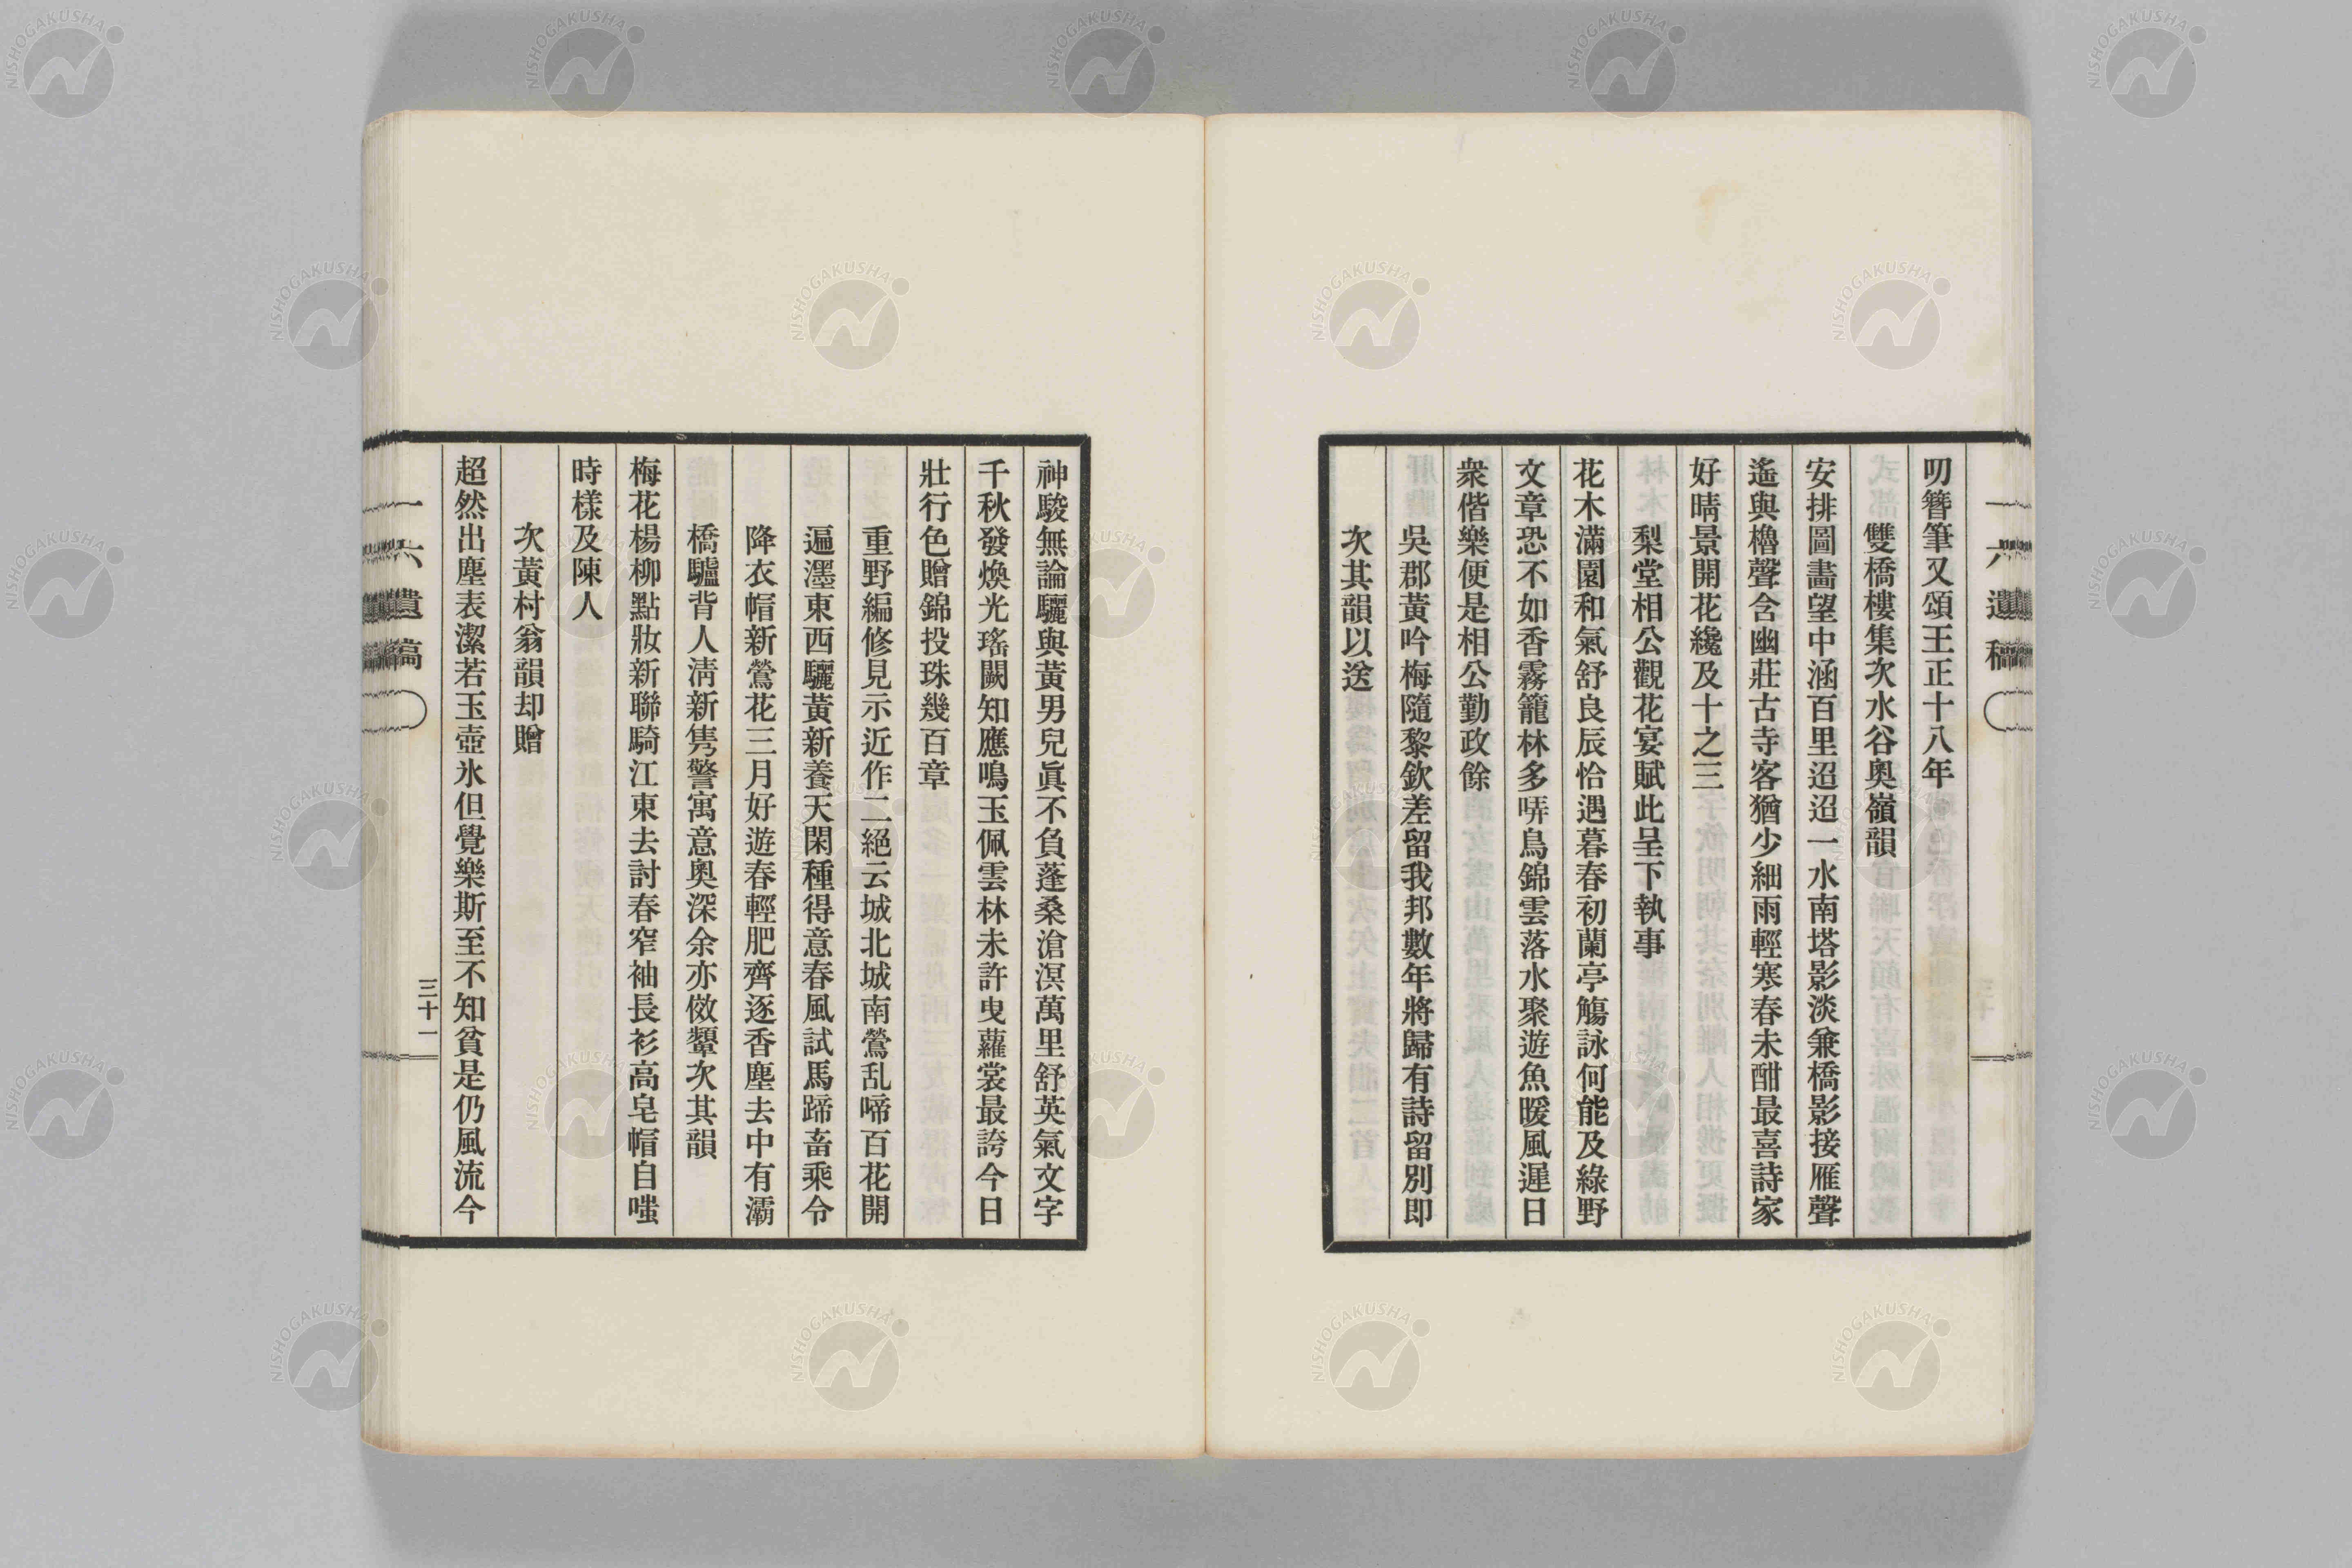 叨簪筆又頌王正十八年
雙橋樓集次水谷奧嶺韻
安排圖畵望中涵百里迢迢一水南塔影淡兼橋影接雁聲
遙與櫓聲含幽莊古寺客猶少細雨輕寒春未酣最喜詩家
好晴景開花纔及十之三
梨堂相公觀花宴賦此呈下執事
花木滿園和氣舒良辰恰遇暮春初蘭亭觴詠何能及綠野
文章恐不如香霧籠林多哢鳥錦雲落水聚遊魚暖風遲日
衆偕樂便是相公勤政餘
吳郡黃吟梅隨黎欽差留我邦數年將歸有詩留別即
次其韻以送
神駿無論驪與黃男兒眞不負蓬桑滄溟萬里舒英氣文字
千秋發煥光瑤闕知應鳴玉佩雲林未許曳蘿裳最誇今日
壯行色贈錦投珠幾百章
重野編修見示近作二絕云城北城南鶯乱啼百花開
遍濹東西驪黃新養天閑種得意春風試馬蹄畜乘令
降衣帽新鶯花三月好遊春輕肥齊逐香塵去中有灞
橋驢背人淸新雋警寓意奧深余亦傚顰次其韻
梅花楊柳點妝新聯騎江東去討春窄袖長衫高皂帽自嗤
時樣及陳人
次黃村翁韻却贈
超然出塵表潔若玉壺氷但覺樂斯至不知貧是仍風流今
一六遺稿
三十一
NISHOGAKUSHA